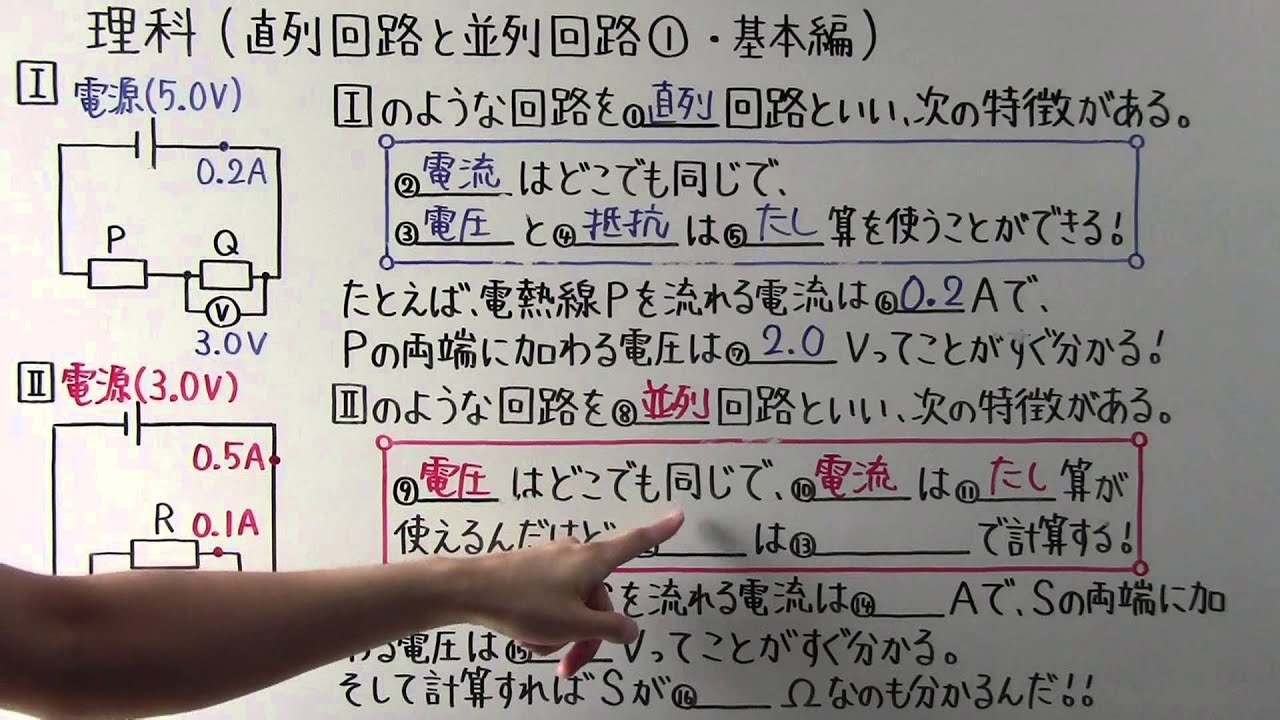 理科(直列回路と並列回路①・基本編)
Ⅰ 電源(5.0V)
0.2A
P
Q
V
3.0V
Ⅰのような回路を①直列回路といい、次の特徴がある。
②電流はどこでも同じで、
③電圧と④抵抗は⑤たし算を使うことができる!
たとえば、電熱線Pを流れる電流は⑥0.2Aで、
Pの両端に加わる電圧は⑦2.0Vってことがすぐ分かる!
Ⅱ 電源(3.0V)
0.5A
R 0.1A
Ⅱのような回路を⑧並列回路といい、次の特徴がある。
⑨電圧はどこでも同じで、⑩電流は⑪たし算が
使えるんだけど は⑬ で計算する!
を流れる電流は⑭ Aで、Sの両端に加
わる電圧は⑮ Vってことがすぐ分かる。
そして計算すればSが⑯ Ωなのも分かるんだ!!